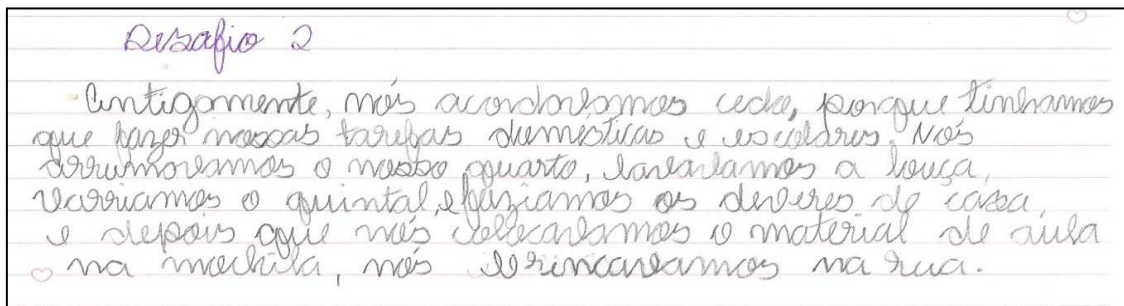 Desafio 2
Antigamente, nós acordavamos cedo, porque tinhamos
que fazer nossas tarefas domésticas e escolares. Nós
arrumavamos o nosso quarto, lavavamos a louça,
varriamos o quintal, e faziamos os deveres de casa,
e depois que nós colocavamos o material de aula
na mochila, nós brincavamos na rua.